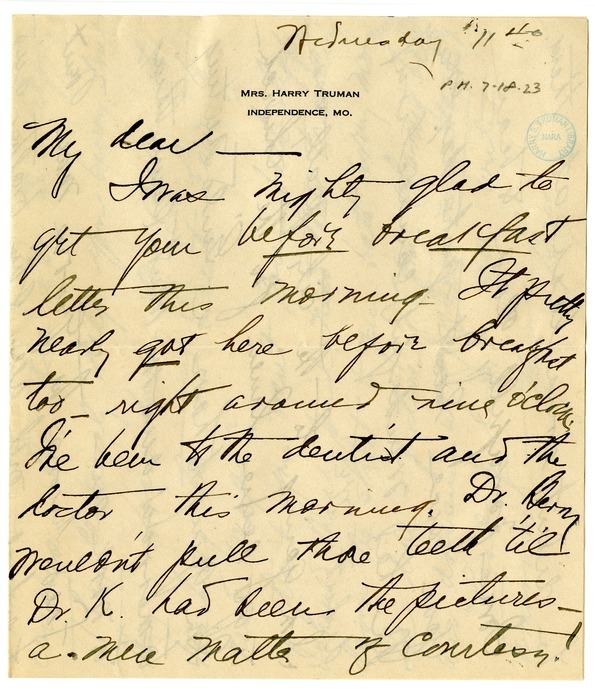 Wednesday 11 40
P.M. 7-18-23
MRS. HARRY TRUMAN
INDEPENDENCE, MO.
HARRY S. TRUMAN LIBRARY
NARA
My dear —
I was mighty glad to
get your before breakfast
letter this morning. It pretty
nearly got here before breakfast
too – right around nine o'clock.
I've been to the dentist and the
doctor this morning. Dr. Berry
wouldn't pull those teeth 'til
Dr. K. had seen the pictures –
a mere matter of courtesy!